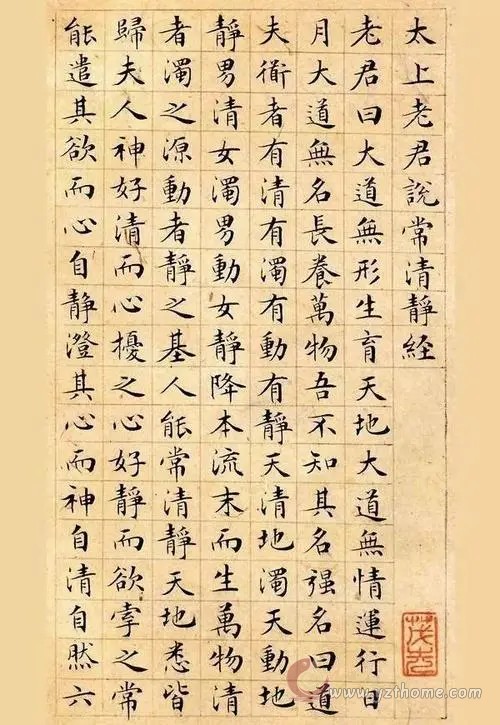 太上老君說常清靜經
老君曰大道無形生育天地大道無情運行日
月大道無名長養萬物吾不知其名强名曰道
夫衜者有清有濁有動有靜天清地濁天動地
靜男清女濁男動女靜降本流末而生萬物清
者濁之源動者靜之基人能常清靜天地悉皆
歸夫人神好清而心擾之心好靜而欲牽之常
能遣其欲而心自静澄其心而神自清自然六
www.yzthome.com